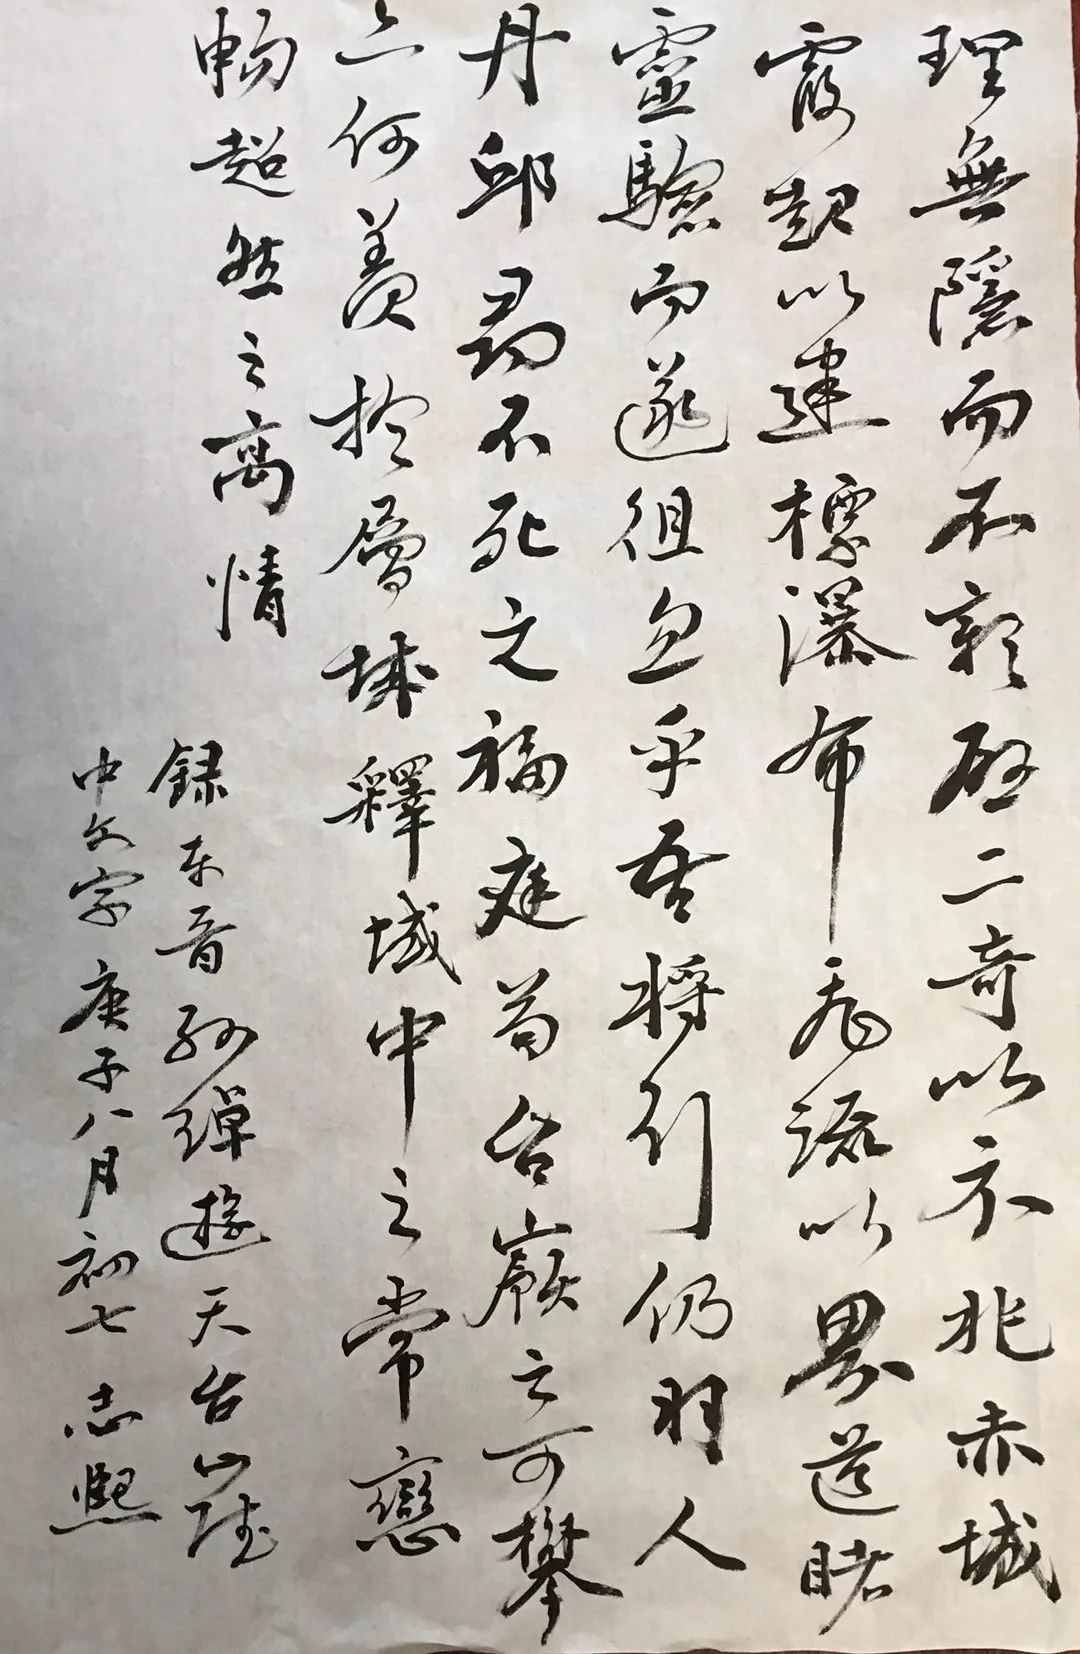 理無隱而不彰啟二奇以示兆赤城
霞起以建標瀑布飛流以界道睹
靈驗而遂徂忽乎吾將行仍羽人
丹邱尋不死之福庭苟台嶺之可攀
亦何羨於層城釋域中之常戀
暢超然之高情
録東晋孫綽遊天台山賦
中文字庚子八月初七志熙